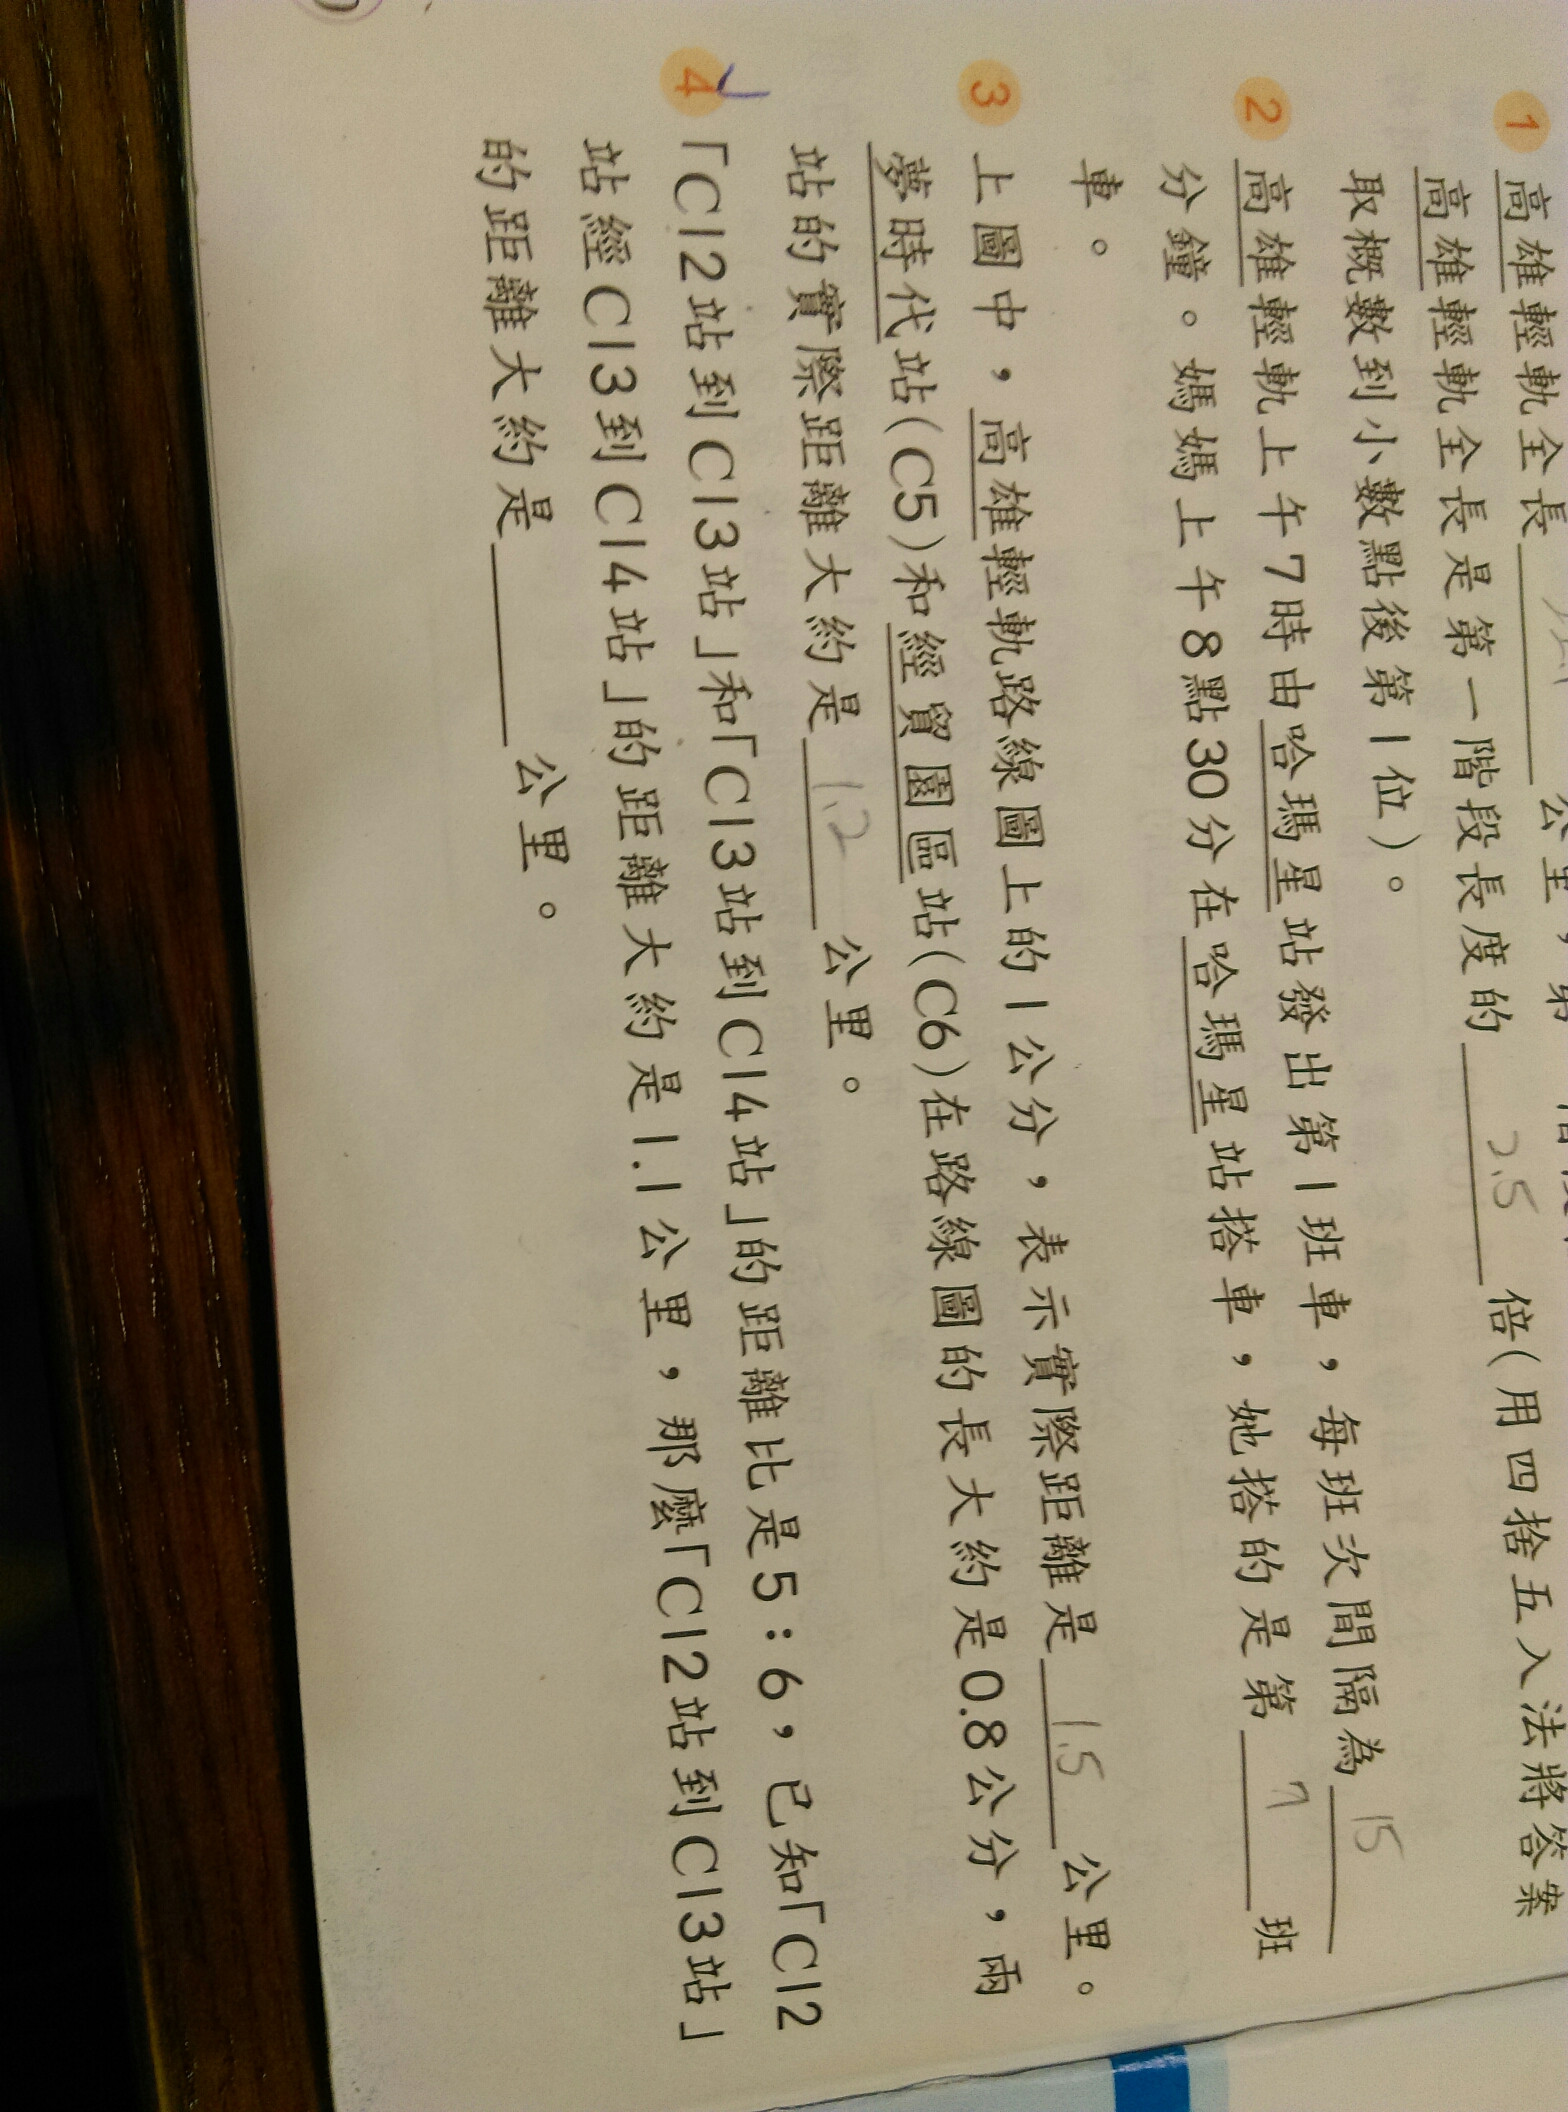 1 高雄輕軌全長 公里，第
高雄輕軌全長是第一階段長度的 2.5 倍(用四捨五入法將答案
取概數到小數點後第1位)。
2 高雄輕軌上午7時由哈瑪星站發出第1班車，每班次間隔為 15
分鐘。媽媽上午8點30分在哈瑪星站搭車，她搭的是第 7 班
車。
3 上圖中，高雄輕軌路線圖上的1公分，表示實際距離是 1.5 公里。
夢時代站(C5)和經貿園區站(C6)在路線圖的長大約是0.8公分，兩
站的實際距離大約是 1.2 公里。
4 「C12站到C13站」和「C13站到C14站」的距離比是5:6，已知「C12
站經C13到C14站」的距離大約是1.1公里，那麼「C12站到C13站」
的距離大約是 公里。